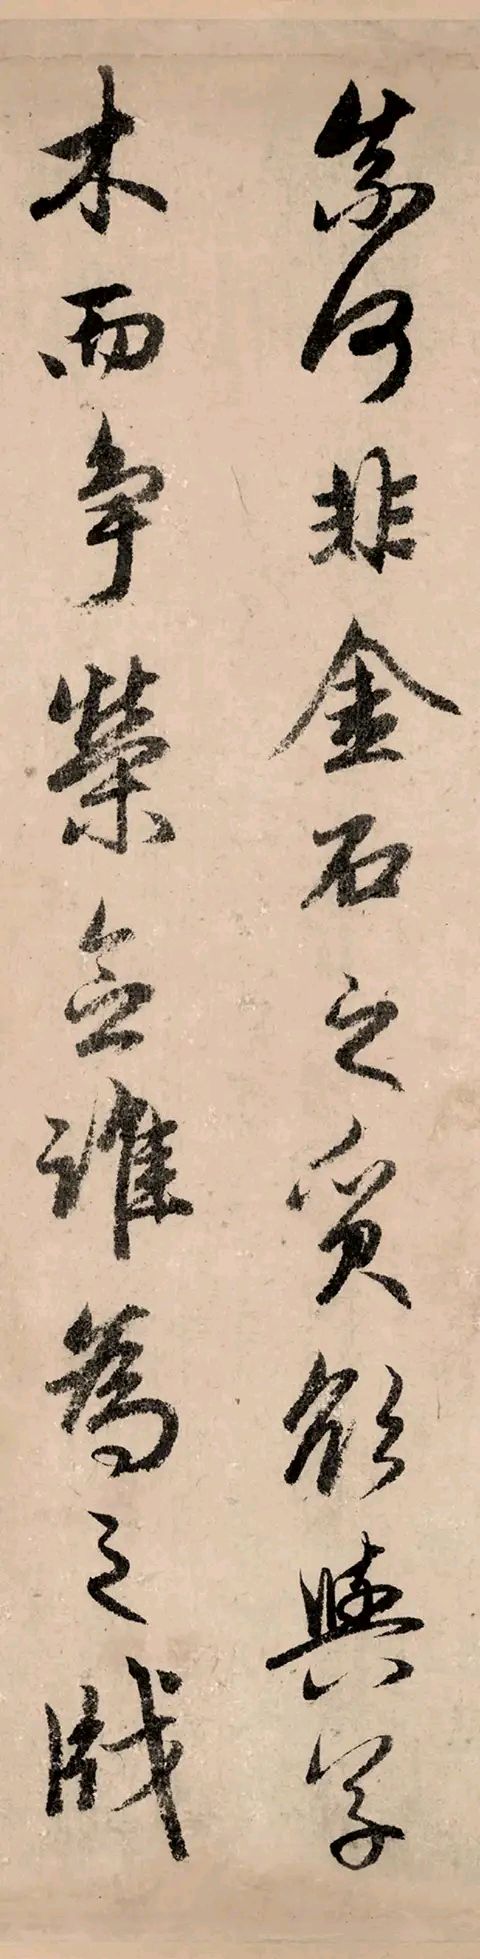 柰何非金石之質欲與草
木而爭榮念誰為之戕